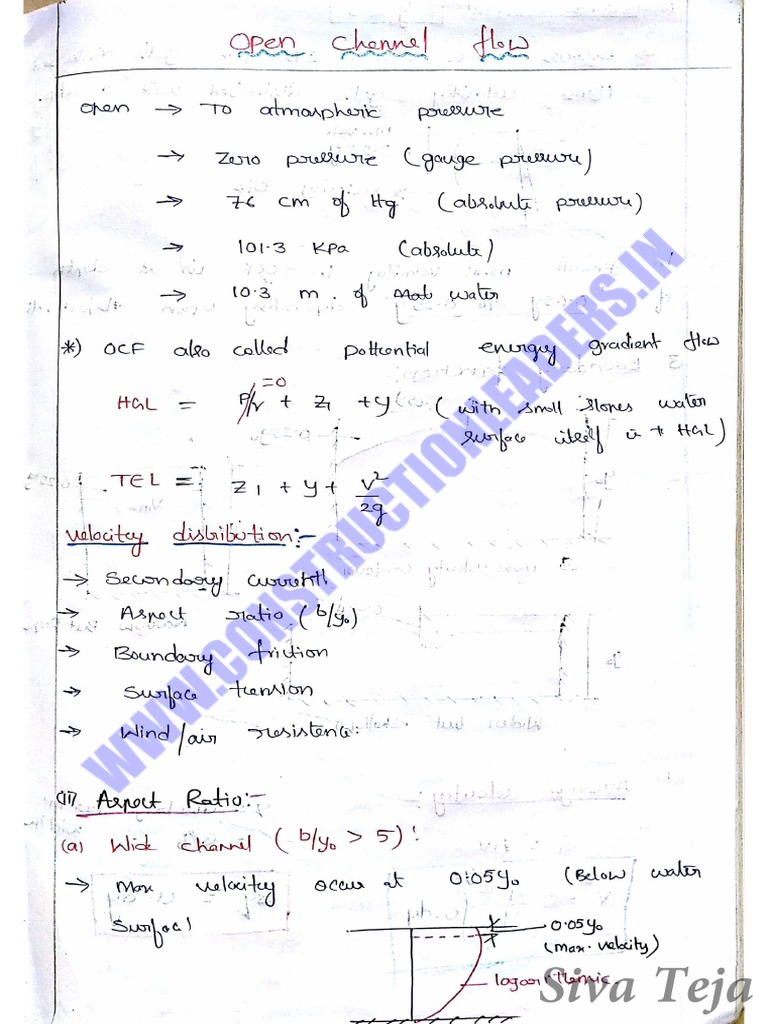 Open Channel flow
Open → To atmospheric pressure
→ Zero pressure (gauge pressure)
→ 76 cm of Hg (absolute pressure)
→ 101.3 KPa (absolute)
→ 10.3 m. of water
*) OCF also called pottential energy gradient flow
HGL = P/r + Z1 + y (with small slopes water
=0
surface itself is HGL)
TEL = Z1 + y + V²/2g
Velocity distribution:-
→ Secondary currents
→ Aspect ratio (b/y₀)
→ Boundary friction
→ Surface tension
→ Wind/air resistence.
(ii) Aspect Ratio:-
(a) Wide channel (b/y₀ > 5):
→ Max velocity occur at 0.05y₀ (Below water
surface)
0.05y₀
(max. velocity)
logarithemic
WWW.CONSTRUCTIONLEADERS.IN
Siva Teja